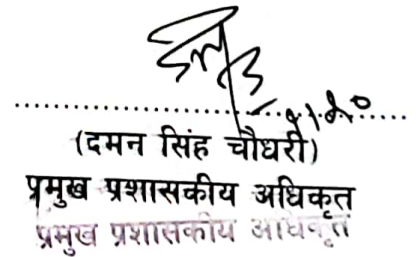 (दमन सिंह चौधरी)
प्रमुख प्रशासकीय अधिकृत
प्रमुख प्रशासकीय अधिकृत